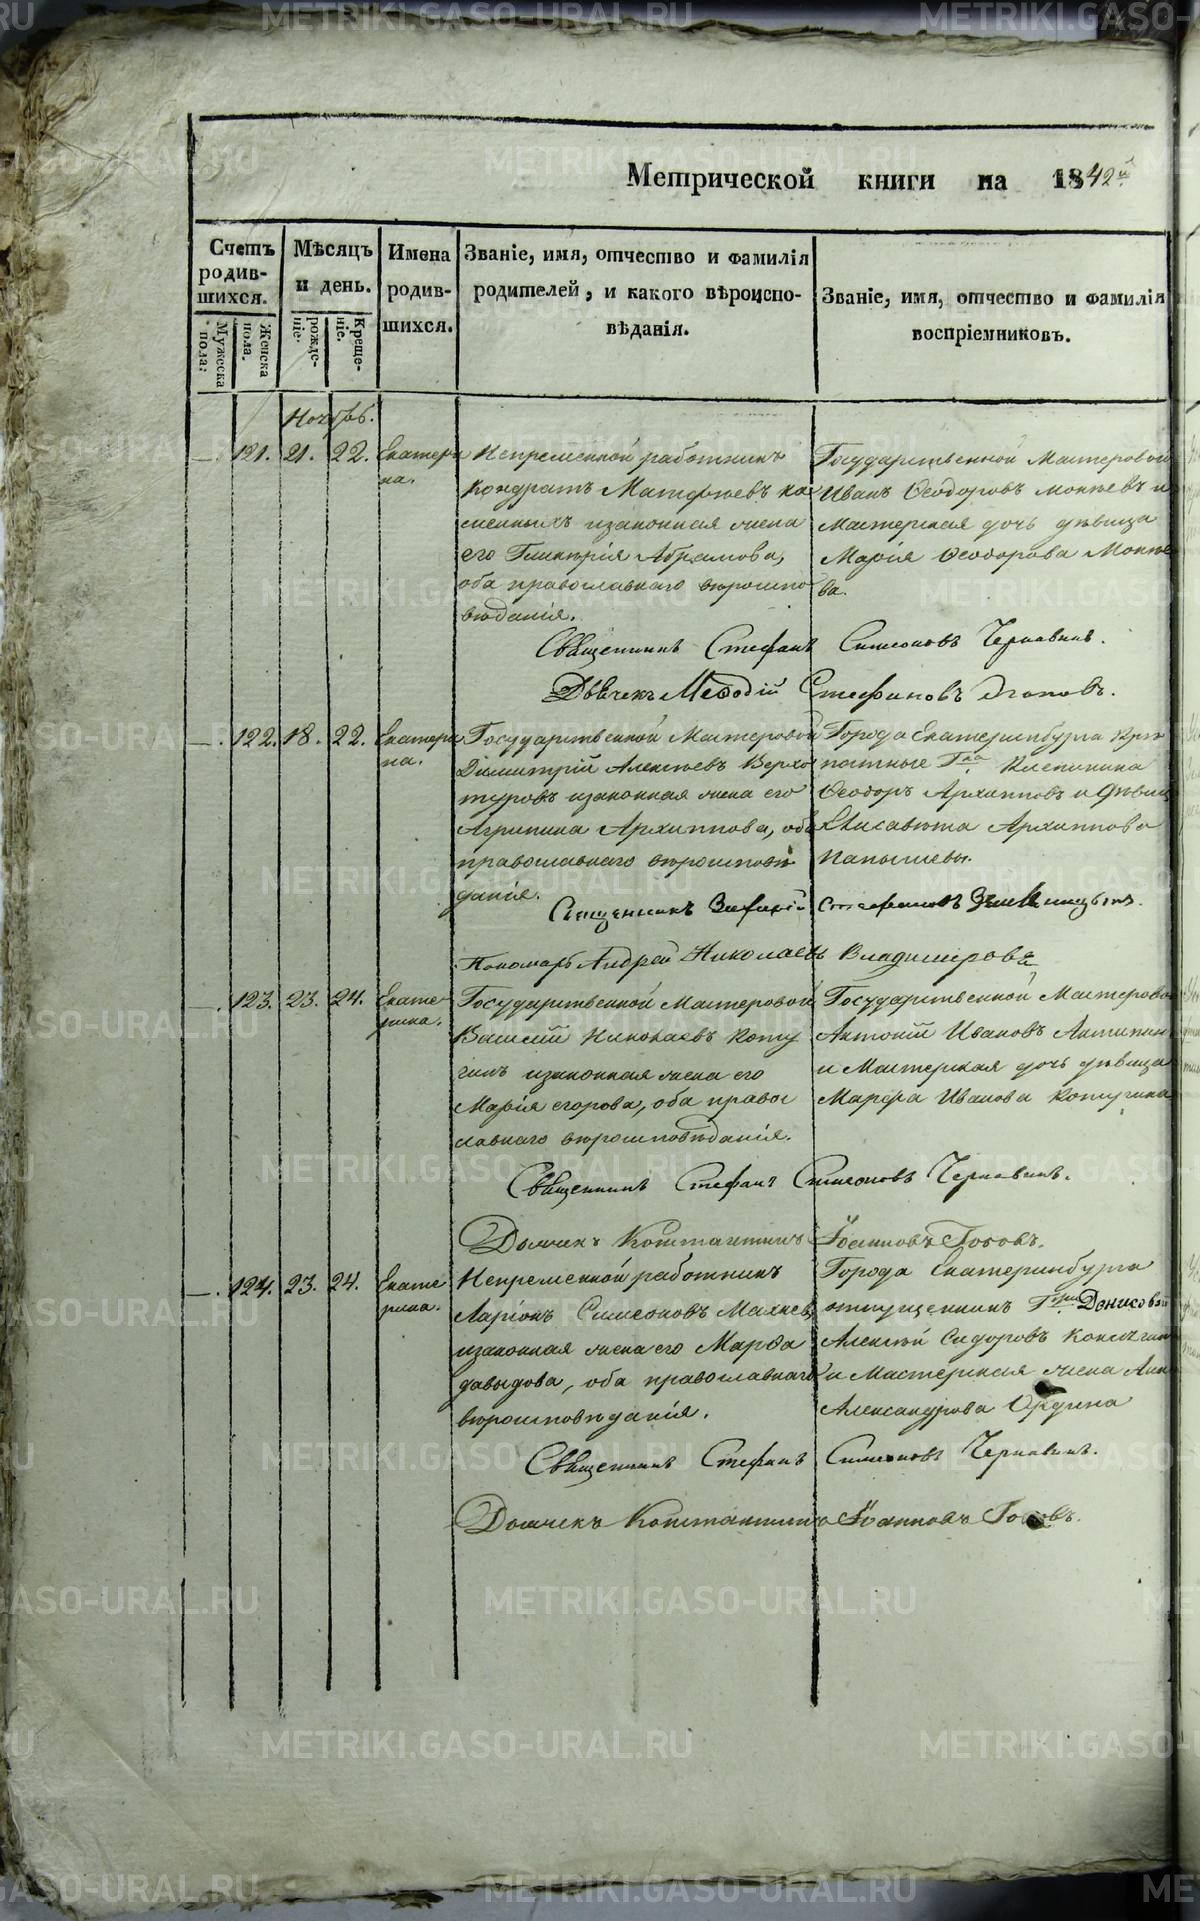 Метрической книги на 1842й
Счетъ родив-шихся.
Мужеска пола.
Женска пола.
Мѣсяцъ и день.
рожде-ніе.
Креще-ніе.
Имена родив-шихся.
Званіе, имя, отчество и фамилія
родителей, и какого вѣроиспо-
вѣданія.
Званіе, имя, отчество и фамилія
воспріемниковъ.
Ноябрь.
—. 121. 21. 22. Екатери
на.
Непременной работникъ
Кондратъ Матфѣевъ Ка
менныхъ изаконная жена
его Гликерія Абрамова,
оба православнаго вѣроиспо
вѣданія.
Государственной Мастеровой
Иванъ Ѳеодоровъ и
Мастерская дочь дѣвица
Марія Ѳеодорова
ва.
Священникъ Стефанъ Симеоновъ Чернавинъ.
Дьячекъ Меѳодій Стефановъ Агаповъ.
—. 122. 18. 22. Екатери
на.
Государственной Мастеровой
Димитрій Алексѣевъ Верхо
туровъ изаконная жена его
Агрипина Архиппова, оба
православнаго вѣроисповѣ
данія.
Города Екатеринбурга Крѣ
постные Гна Клепинина
Ѳеодоръ Архипповъ и дѣвица
Елисавета Архиппова
Священникъ Стефановъ
Пономарь Андрей Николаевъ Владимеровъ
—. 123. 23. 24. Екате-
рина.
Государственной Мастеровой
Василий Николаевъ Кочу
гинъ изаконная жена его
Марія егорова, оба право
славнаго вѣроисповѣданія.
Государственной Мастерово
Антоній Ивановъ Антипин
и Мастерская дочь дѣвица
Марфа Иванова Кочугина
Священникъ Стефанъ Симеоновъ Чернавинъ.
Дьячекъ Константинъ Іоанновъ Поповъ.
—. 124. 23. 24. Екате
рина.
Непременной работникъ
Ларіонъ Симеоновъ Махнев
изаконная жена его Марѳа
давыдова, оба православнаго
вѣроисповѣданія.
Города Екатеринбурга
отпущенникъ Гжи Денисовой
Алексѣй Сидоровъ
и Мастерская жена Анн
Александрова
Священникъ Стефанъ Симеоновъ Чернавинъ.
Дьячекъ Константинъ Іоанновъ Поповъ.
METRIKI.GASO-URAL.RU